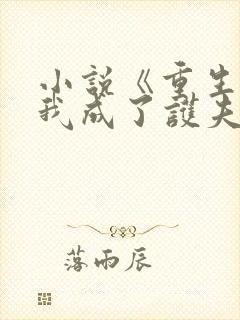 小説《重生
我成了護夫
落雨辰